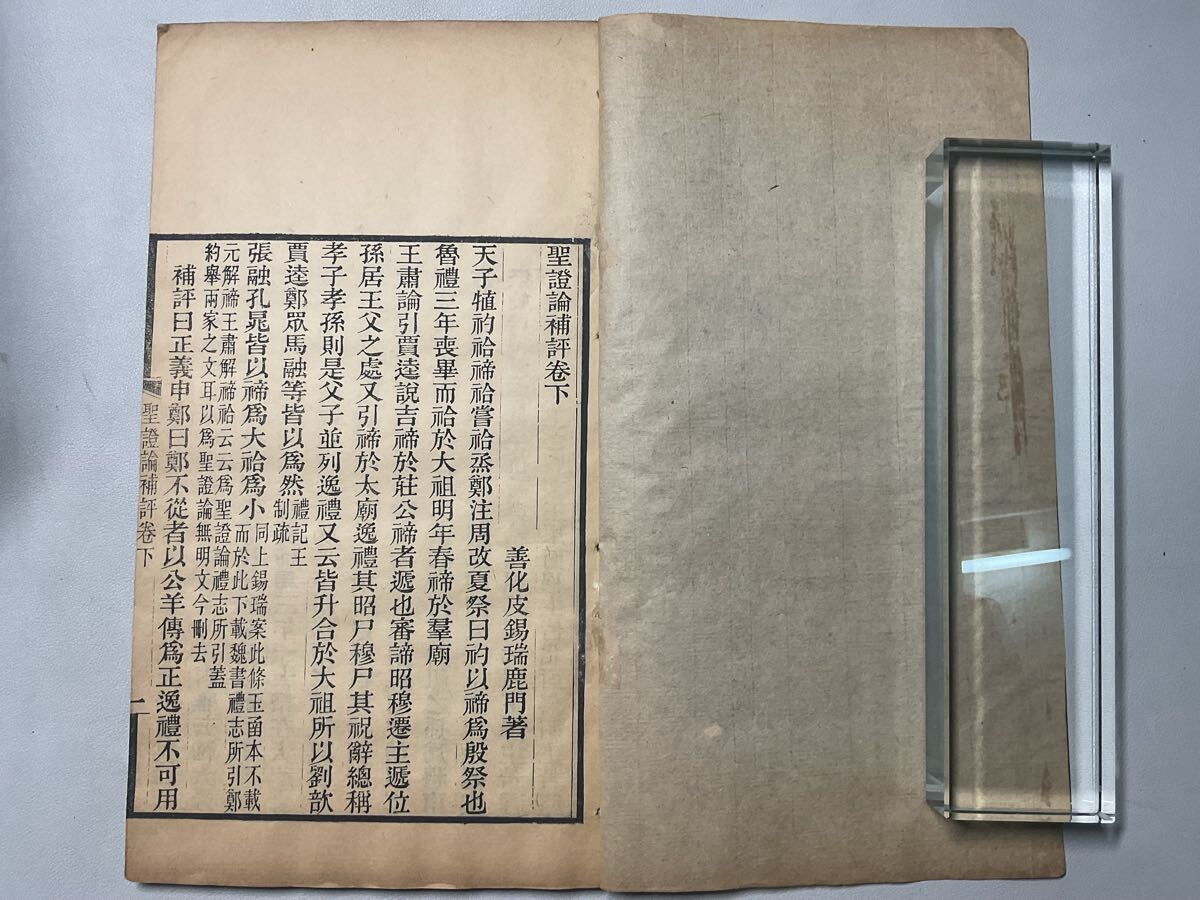 聖證論補評卷下
善化皮錫瑞鹿門著
天子犆礿祫禘祫嘗祫烝鄭注周改夏祭曰礿以禘爲殷祭也
魯禮三年喪畢而祫於大祖明年春禘於羣廟
王肅論引賈逵說吉禘於莊公禘者遞也審諦昭穆遷主遞位
孫居王父之處又引禘於太廟逸禮其昭尸穆尸其祝辭總稱
孝子孝孫則是父子並列逸禮又云皆升合於大祖所以劉歆
賈逵鄭眾馬融等皆以爲然禮記王
制疏
張融孔晁皆以禘爲大祫爲小同上錫瑞案此條玉函本不載
而於此下載魏書禮志所引鄭
元解禘王肅解禘祫云云爲聖證論禮志所引蓋
約舉兩家之文耳以爲聖證論無明文今刪去
補評曰正義申鄭曰鄭不從者以公羊傳爲正逸禮不可用
聖證論補評卷下
一